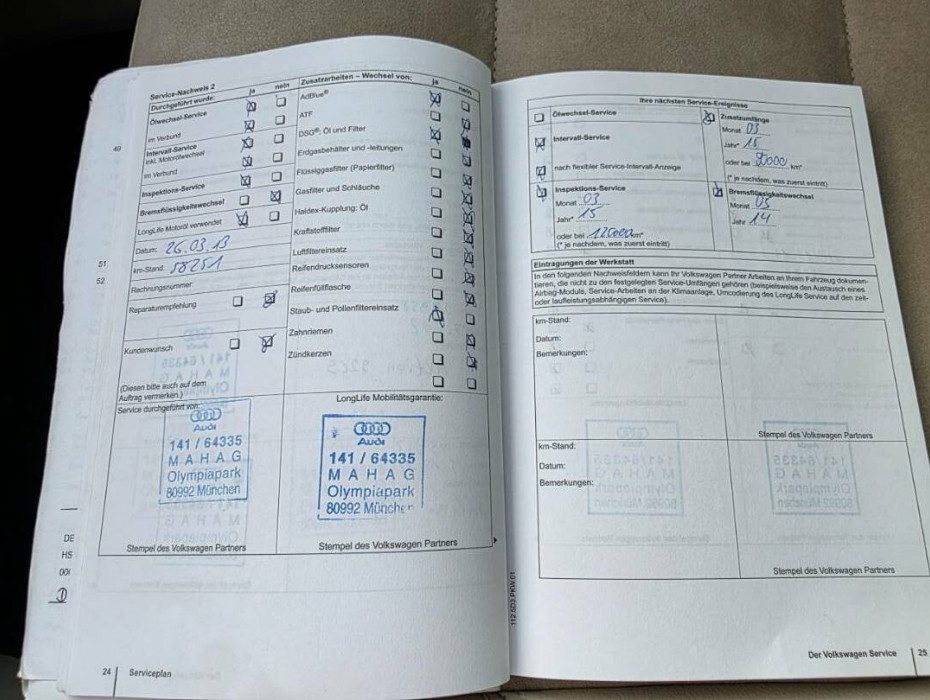 Service-Nachweis 2
Durchgeführt wurde: ja nein
Ölwechsel-Service
im Verbund
Intervall-Service
inkl. Motorölwechsel
im Verbund
Inspektions-Service
Bremsflüssigkeitswechsel
LongLife Motoröl verwendet
Datum: 26.03.13
km-Stand: 58251
Rechnungsnummer:
Reparaturempfehlung
Kundenwunsch
(Diesen bitte auch auf dem
Auftrag vermerken.)
Service durchgeführt von:
Audi
141 / 64335
MAHAG
Olympiapark
80992 München
Stempel des Volkswagen Partners
Zusatzarbeiten – Wechsel von: ja nein
AdBlue®
ATF
DSG®: Öl und Filter
Erdgasbehälter und -leitungen
Flüssiggasfilter (Papierfilter)
Gasfilter und Schläuche
Haldex-Kupplung: Öl
Kraftstofffilter
Luftfiltereinsatz
Reifendrucksensoren
Reifenfüllflasche
Staub- und Pollenfiltereinsatz
Zahnriemen
Zündkerzen
LongLife Mobilitätsgarantie:
Audi
141 / 64335
MAHAG
Olympiapark
80992 München
Stempel des Volkswagen Partners
49
51
52
DE
HS
001
24 Serviceplan
Ihre nächsten Service-Ereignisse
Ölwechsel-Service
Intervall-Service
nach flexibler Service-Intervall-Anzeige
Inspektions-Service
Monat 03
Jahr* 15
oder bei 120000 km*
(* je nachdem, was zuerst eintritt)
Zusatzumfänge
Monat 03
Jahr* 15
oder bei 90000 km*
(* je nachdem, was zuerst eintritt)
Bremsflüssigkeitswechsel
Monat 05
Jahr 14
Eintragungen der Werkstatt
In den folgenden Nachweisfeldern kann Ihr Volkswagen Partner Arbeiten an Ihrem Fahrzeug dokumen-
tieren, die nicht zu den festgelegten Service-Umfängen gehören (beispielsweise den Austausch eines
Airbag-Moduls, Service-Arbeiten an der Klimaanlage, Umcodierung des LongLife Service auf den zeit-
oder laufleistungsabhängigen Service).
km-Stand:
Datum:
Bemerkungen:
Stempel des Volkswagen Partners
km-Stand:
Datum:
Bemerkungen:
Stempel des Volkswagen Partners
Der Volkswagen Service 25